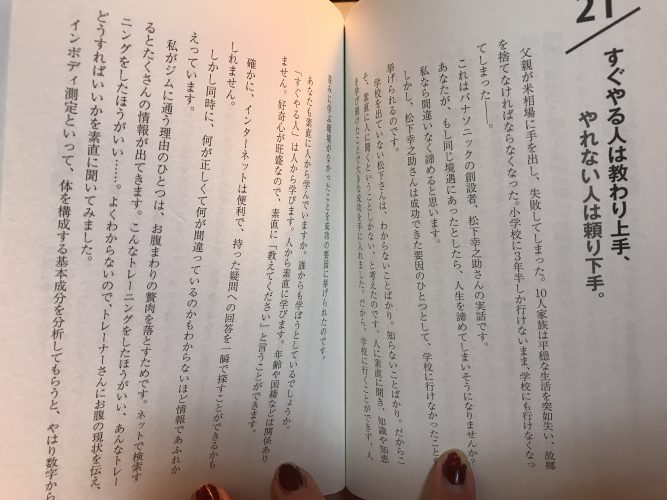 21
すぐやる人は教わり上手、
やれない人は頼り下手。
父親が米相場に手を出し、失敗してしまった。10人家族は平穏な生活を突如失い、故郷
を捨てなければならなくなった。小学校に3年半しか行けないまま、学校にも行けなくなっ
てしまった――。
これはパナソニックの創設者、松下幸之助さんの実話です。
あなたが、もし同じ境遇にあったとしたら、人生を諦めてしまいそうになりませんか?
私なら間違いなく諦めると思います。
しかし、松下幸之助さんは成功できた要因のひとつとして、学校に行けなかったこと
挙げられるのです。
学校を出ていない松下さんは、わからないことばかり。知らないことばかり。だからこ
そ、素直に人に聞くということしかない、と考えたのです。人に素直に聞き、知識や知恵
を学び続けたことで大きな成功を手に入れました。だから、学校に行くことができず、人
並みに学ぶ環境がなかったことを成功の要因に挙げられたのです。
あなたは素直に人から学んでいますか。誰からも学ぼうとしているでしょうか。
「すぐやる人」は人から学びます。人から素直に学びます。年齢や国籍などは関係あり
ません。好奇心が旺盛なので、素直に「教えてください」と言うことができます。
確かに、インターネットは便利で、持った疑問への回答を一瞬で探すことができるかも
しれません。
しかし同時に、何が正しくて何が間違っているのかもわからないほど情報であふれか
えっています。
私がジムに通う理由のひとつは、お腹まわりの贅肉を落とすためです。ネットで検索す
るとたくさんの情報が出てきます。こんなトレーニングをしたほうがいい、あんなトレー
ニングをしたほうがいい……。よくわからないので、トレーナーさんにお腹の現状を伝え、
どうすればいいかを素直に聞いてみました。
インボディ測定といって、体を構成する基本成分を分析してもらうと、やはり数字から